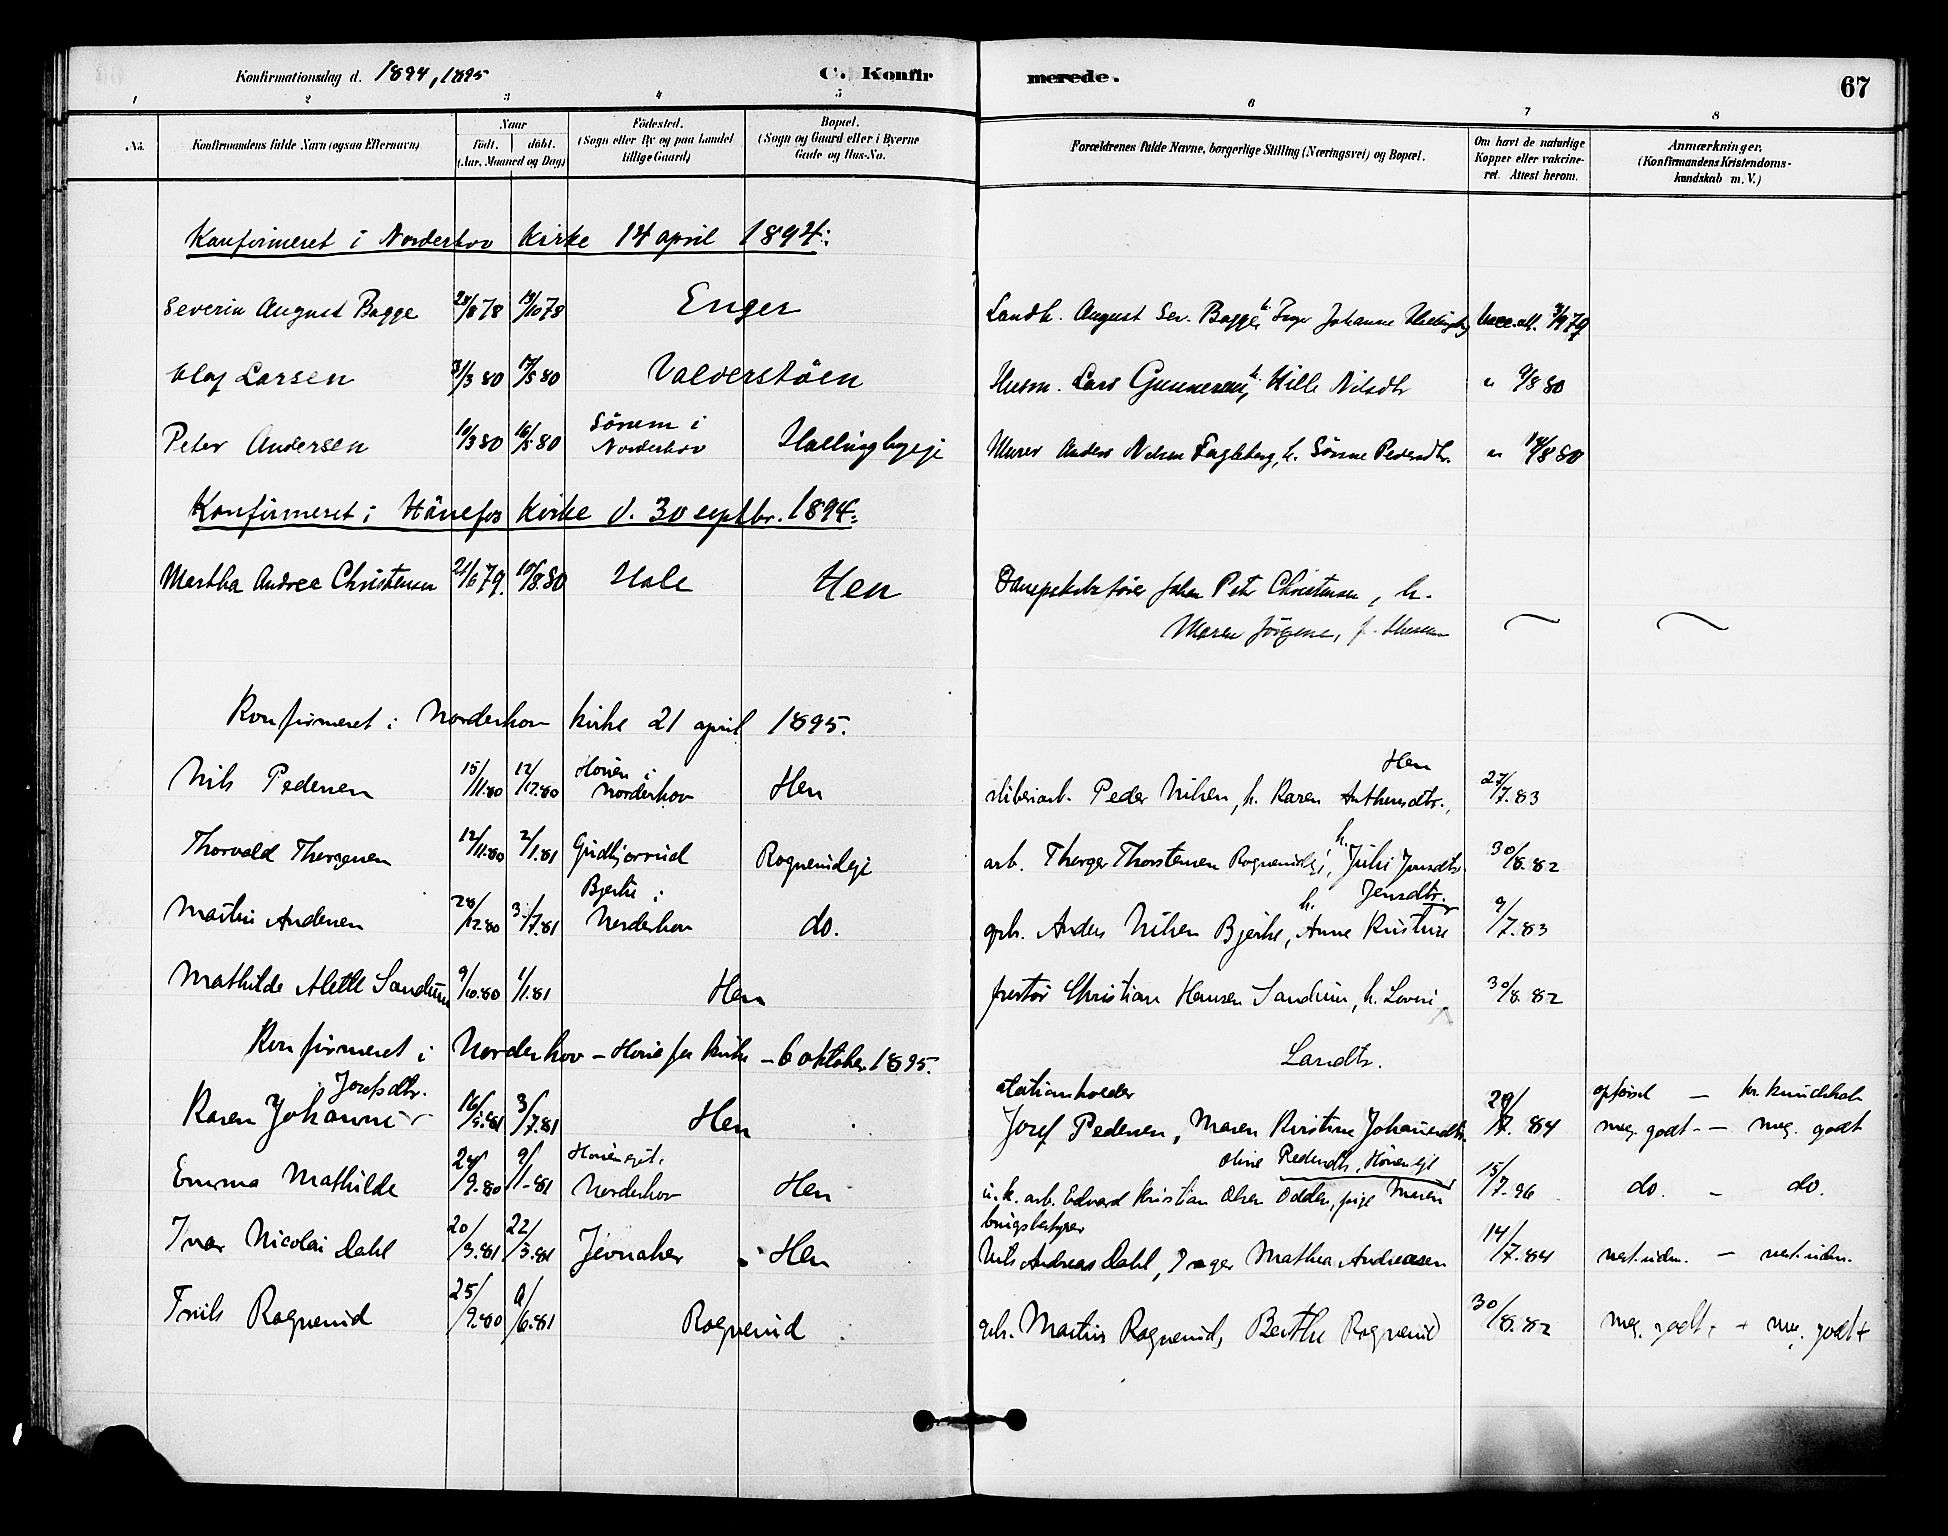 Konfirmationsdag d. 1894, 1895 C. Konfirmerede. 67
1 2 3 4 5 6 7 8
No. Konfirmandens fulde Navn (ogsaa Efternavn) Naar født. døbt. (Aar, Maaned og Dag) Fødested. (Sogn eller By og paa Landet tillige Gaard) Bopæl. (Sogn og Gaard eller i Byerne Gade og Hus-No. Forældrenes fulde Navne, borgerlige Stilling (Næringsvei) og Bopæl. Om havt de naturlige Kopper eller vakcineret. Attest herom. Anmærkninger. (Konfirmandens Kristendomskundskab m. V.)
Konfirmeret i Norderhov Kirke 14 april 1894:
Severin August Bagge 28/8 78 19/10 78 Enger Landh. August Sev. Bagge, h. Inger Johanne Vacc. att. 3/9 79
Olaf Larsen 31/3 80 17/5 80 Valderstøen Husm. Lars Gunnersen, h. Kille Nilsdtr " 9/8 80
Peter Andersen 10/3 80 16/5 80 Sørum i Norderhov Hallingbyeje Murer Anders Nilsen Fagleberg, h. Sørine Pedersdtr. " 14/8 80
Konfirmeret i Hønefos Kirke d. 30 septbr. 1894:
Martha Andrea Christensen 21/6 79. 10/8 80 Hole Hen Johan Petr Christensen, h.
Maren Jørgine, f.
Konfirmeret i Norderhov kirke 21 april 1895.
Nils Pedersen 15/11.80 12/12.80 Hønen i Norderhov Hen sliberiarb. Peder Nilsen, h. Karen Anthensdtr., Hen 27/7.83
Thorvald Thorgersen 12/11.80 2/1.81 Gudbjørrud Rognerudeje arb. Thorger Thorstensen Rognerudeje, h. Juli Jonsdtr. 30/8.82
Martin Andersen 28/12.80 3/7.81 Bjerke i Norderhov do. gbr. Anders Nilsen Bjerke, h. Anne Kristine Jensdtr. 9/7.83
Mathilde Alette Sandum 9/10.80 1/1.81 Hen Christian Hansen Sandum, h. Lovise 30/8.82
Landtr.
Konfirmeret i Norderhov – Hønefos kirke – 6 oktober 1895.
Karen Johanne Josefsdtr. 16/5.81 3/7.81 Hen stationholder Josef Pedersen, Maren Kirstine Johannesdtr. 29/7. 84 opførsel – kr. kundskab meg. godt – meg. godt
Emma Mathilde 24/9.80 9/1-81 Hønenejet, Norderhov Hen u. k. arb. Edvard Kristian Olsen Odden, pige Maren Oline Pedersdtr, Hønenejet 15/7.96 do. – do.
Ivar Nicolai Dahl 20/3.81 22/5.81 Jevnaker Hen brugsbestyrer Nils Andreas Dahl, Inger Mathea Andreasen 14/7.84 mest. udm. – mest. udm.
Truls Rognerud 25/9.80 6/6.81 Rognerud gbr. Martin Rognerud, Berthe Rognerud 30/8.82 meg. godt + + meg. godt +